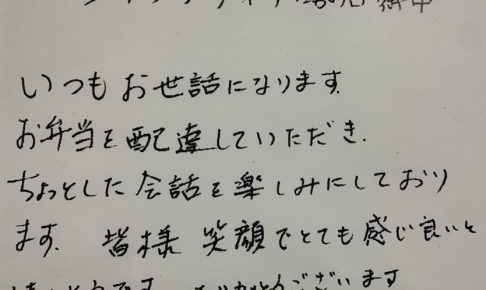 いつもお世話になります.
お弁当を配達していただき.
ちょっとした会話を楽しみにしており
ます. 皆様 笑顔でとても感じ良いと
ございます